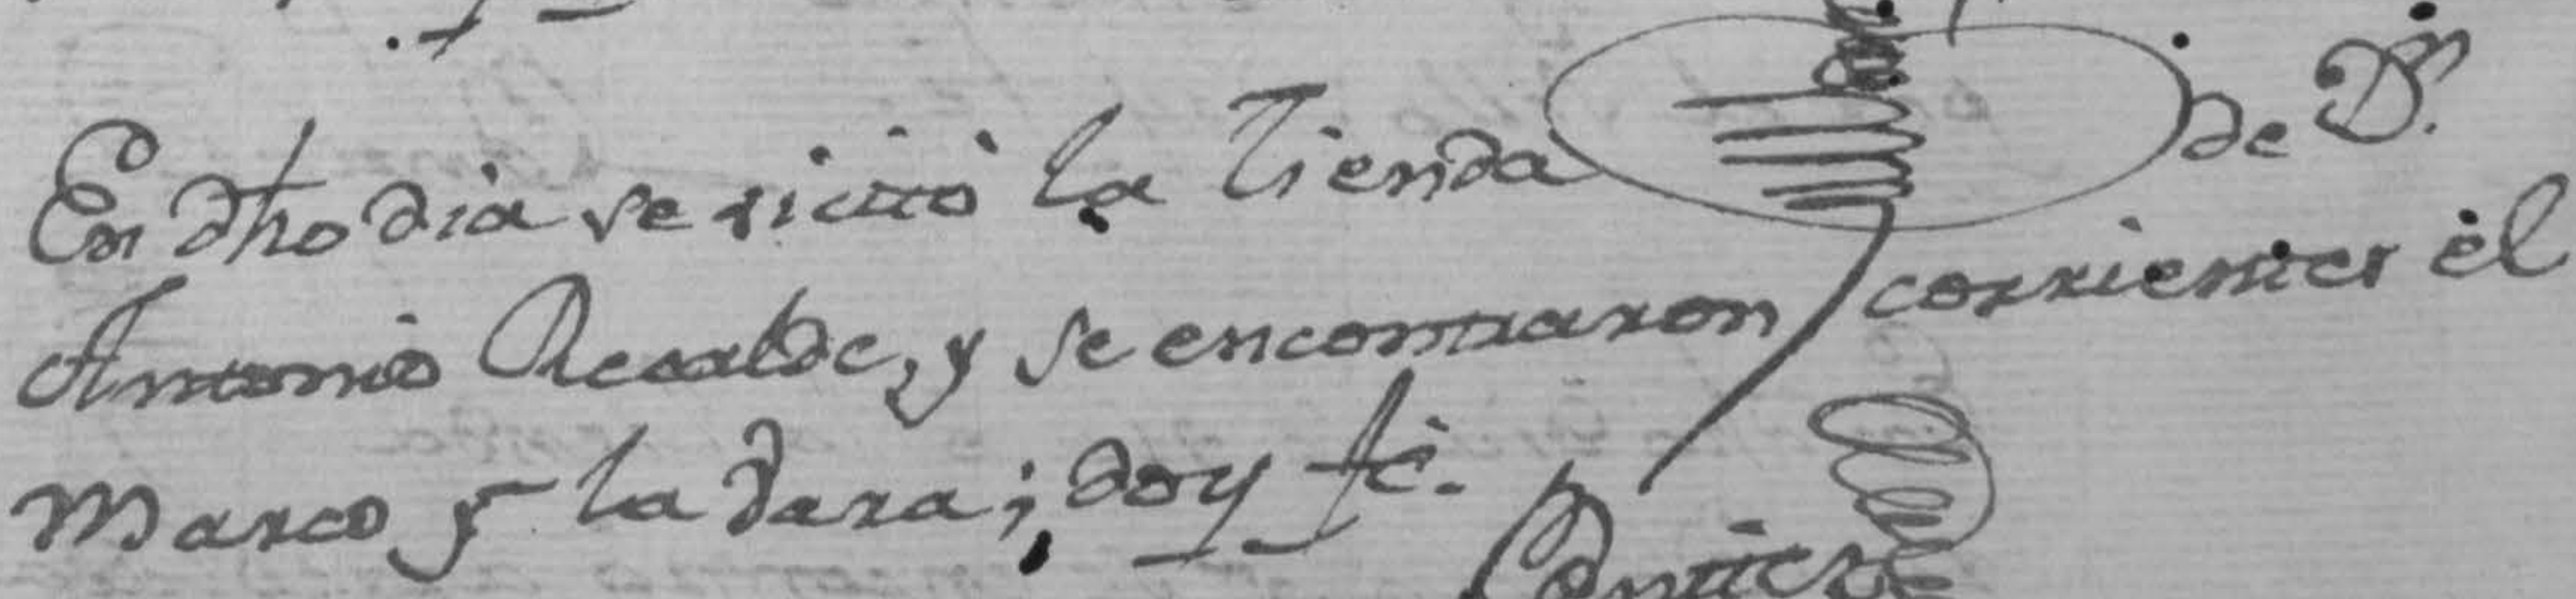 En dho dia se vicitó la Tienda de Dn.
Antonio Recalde, y se encontraron corrientes el
Marco y la Vara; doy fé.